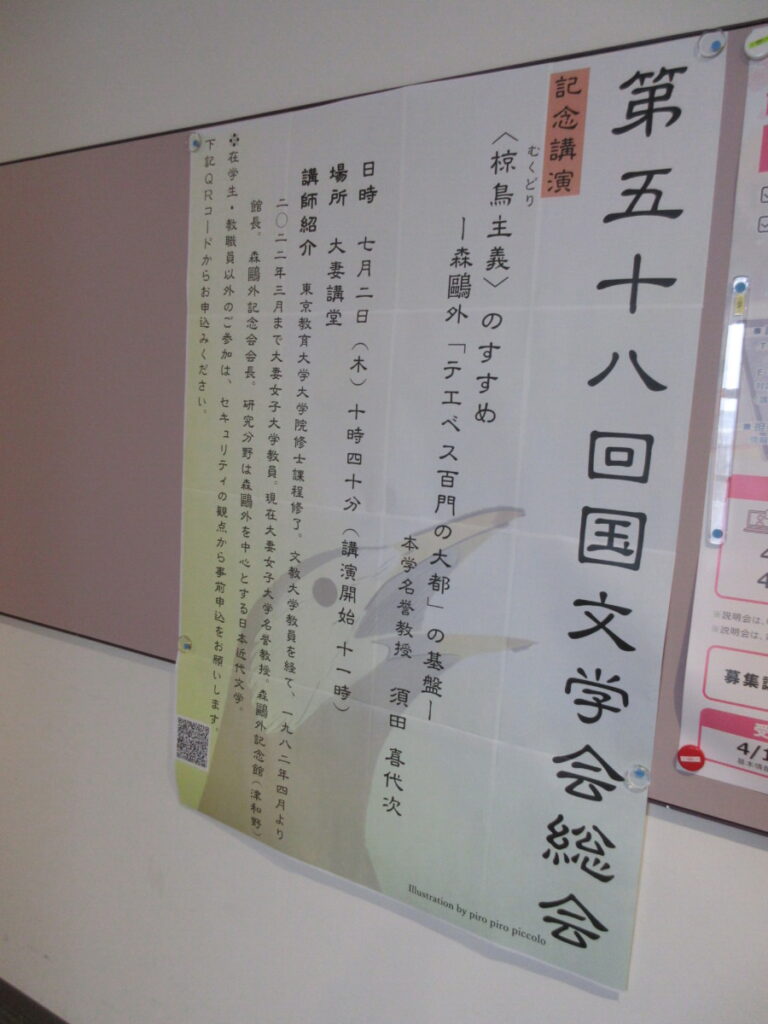 第五十八回国文学会総会
記念講演
むくどり
〈椋鳥主義〉のすすめ
―森鷗外「テエベス百門の大都」の基盤―
本学名誉教授 須田 喜代次
日時 七月二日(木)十時四十分(講演開始 十一時)
場所 大妻講堂
講師紹介 東京教育大学大学院修士課程修了。文教大学教員を経て、一九八二年四月より
二〇二二年三月まで大妻女子大学教員。現在大妻女子大学名誉教授。森鷗外記念館(津和野)
館長。森鷗外記念会会長。研究分野は森鷗外を中心とする日本近代文学。
❖在学生・教職員以外のご参加は、セキュリティの観点から事前申込をお願いします。
下記QRコードからお申込みください。
Illustration by piro piro piccolo
※説明会は、
※説明会は、
募集
4/1
基本情報